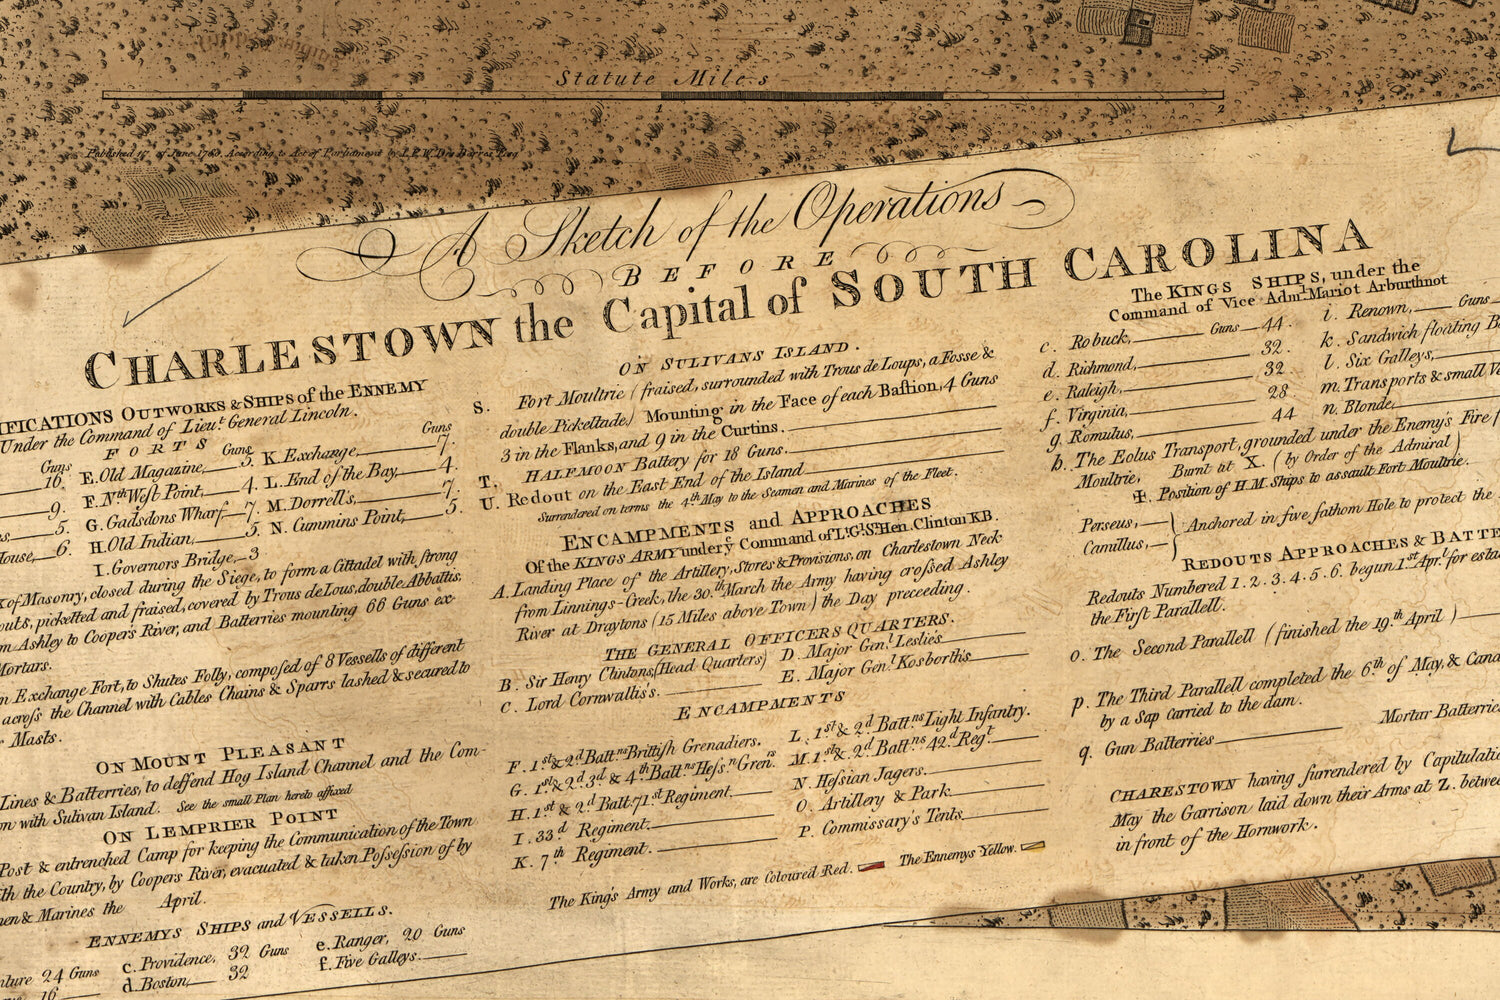 Statute Miles
1
2
Published 17th of June 1780. According to Act of Parliament by J.F.W. Des Barres Esq.
A Sketch of the Operations
BEFORE
CHARLESTOWN the Capital of SOUTH CAROLINA
IFICATIONS OUTWORKS & SHIPS of the ENNEMY
Under the Command of Lieut. General Lincoln.
FORTS
Guns Guns Guns
16. E. Old Magazine, 5. K. Exchange, 7.
9. F. Nth West Point, 4. L. End of the Bay, 4.
5. G. Gadsdons Wharf 7. M. Dorrell's, 7.
House, 6. H. Old Indian, 5. N. Cummins Point, 5.
I. Governors Bridge, 3
k of Masonry, closed during the Siege, to form a Cittadel with strong
outs, picketted and fraised, covered by Trous de Lous, double Abbattis.
m Ashley to Coopers River, and Batterries mounting 66 Guns ex-
Mortars.
n Exchange Fort, to Shutes Folly, composed of 8 Vessels of different
across the Channel with Cables Chains & Sparrs lashed & secured to
r Masts.
ON MOUNT PLEASANT
Lines & Batterries, to deffend Hog Island Channel and the Com-
on with Sulivan Island. See the small Plan hereto affixed
ON LEMPRIER POINT
Post & entrenched Camp for keeping the Communication of the Town
th the Country, by Coopers River, evacuated & taken Possession of by
men & Marines the April.
ENNEMYS SHIPS and VESSELLS.
nture 24 Guns c. Providence, 32 Guns e. Ranger, 20 Guns
16 d. Boston, 32 f. Five Galleys.
ON SULIVANS ISLAND.
S. Fort Moultrie (fraised, surrounded with Trous de Loups, a Fosse &
double Pickettade.) Mounting in the Face of each Bastion, 4 Guns
3 in the Flanks, and 9 in the Curtins.
T. HALFMOON Battery for 18 Guns.
U. Redout on the East End of the Island
Surrendered on terms the 4th May to the Seamen and Marines of the Fleet.
ENCAMPMENTS and APPROACHES
Of the KINGS ARMY under ye Command of Lt. Gl. Sr. Hen. Clinton KB.
A. Landing Place of the Artillery, Stores & Provisions, on Charlestown Neck
from Linnings-Creek, the 30th March the Army having crossed Ashley
River at Draytons (15 Miles above Town) the Day preceeding.
THE GENERAL OFFICERS QUARTERS.
B. Sir Henry Clintons, (Head Quarters) D. Major Genl. Leslie's
C. Lord Cornwallis's. E. Major Genl. Kosborth's
ENCAMPMENTS
F. 1st & 2d Battns Brittish Grenadiers. L. 1st & 2d Battns Light Infantry.
G. 1st & 2d 3d & 4th Battns Hessn Grenrs M. 1st & 2d Battns 42d Regt
H. 1st & 2d Batt. 71st Regiment. N. Hessian Jagers.
I. 33d Regiment. O. Artillery & Park.
K. 7th Regiment. P. Commissary's Tents.
The King's Army and Works, are Coloured Red. The Ennemys Yellow.
The KINGS SHIPS, under the
Command of Vice Adml. Mariot Arburthnot
c. Robuck, Guns 44. i. Renown, Guns
d. Richmond, 32. k. Sandwich floating B
e. Raleigh, 32 l. Six Galleys,
f. Virginia, 28 m. Transports & small V
g. Romulus, 44 n. Blonde,
h. The Eolus Transport, grounded under the Enemy's Fire
Moultrie, Burnt at X. (by Order of the Admiral)
Position of H.M. Ships to assault Fort Moultrie.
Perseus, Anchored in five fathom Hole to protect the
Camillus,
REDOUTS APPROACHES & BATTE
Redouts Numbered 1. 2. 3. 4. 5. 6. begun 1st Apr. for esta
the First Parallell.
o. The Second Parallell (finished the 19th April)
p. The Third Parallell completed the 6th of May, & Cana
by a Sap carried to the dam.
q. Gun Batterries Mortar Batterries
CHARESTOWN having surrendered by Capitulati
May the Garrison laid down their Arms at Z. betwe
in front of the Hornwork.